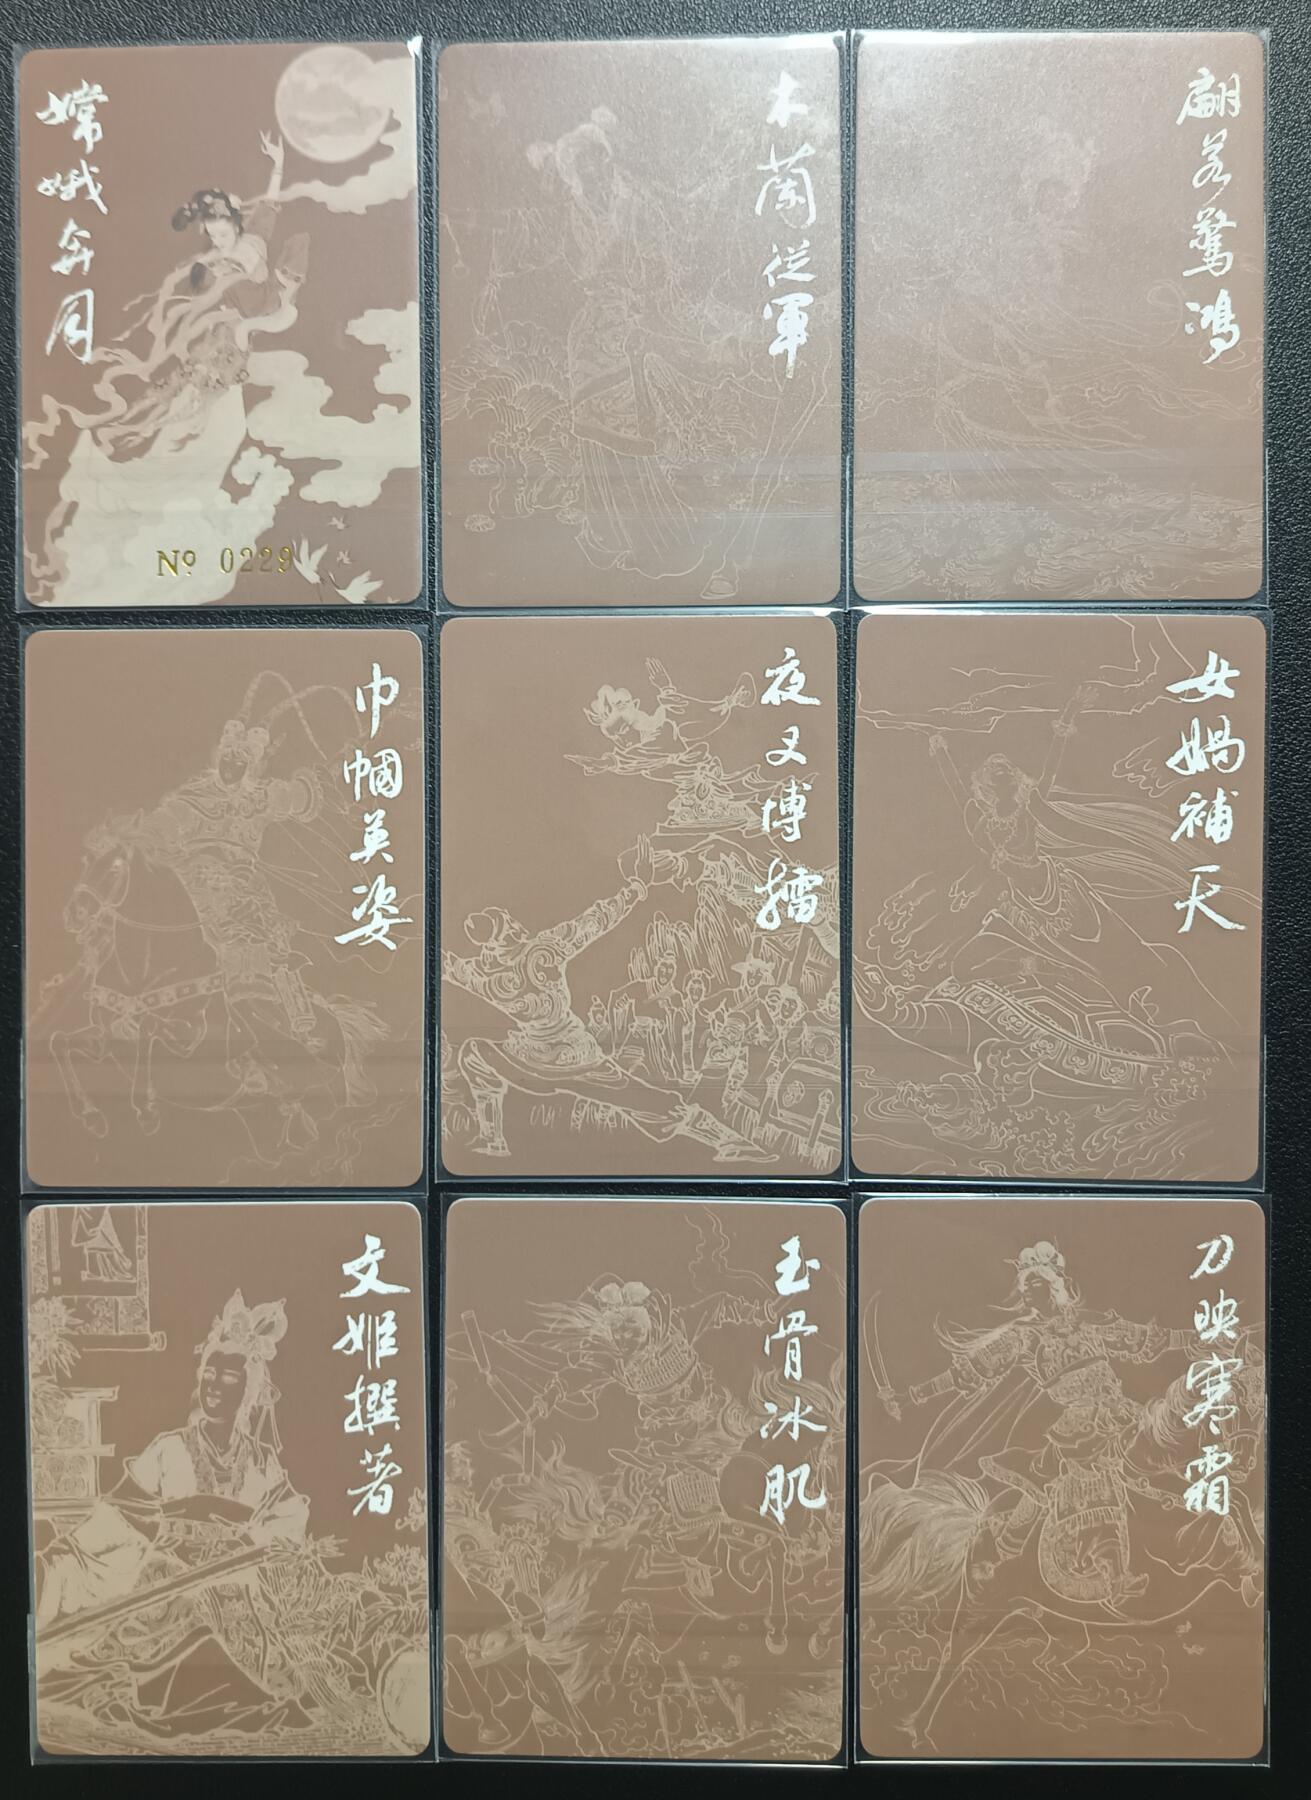 嫦娥奔月
Nº 0229
木蘭從軍
翩若驚鴻
巾幗英姿
夜叉博擂
女媧補天
文姬撰著
玉骨冰肌
刀映寒霜